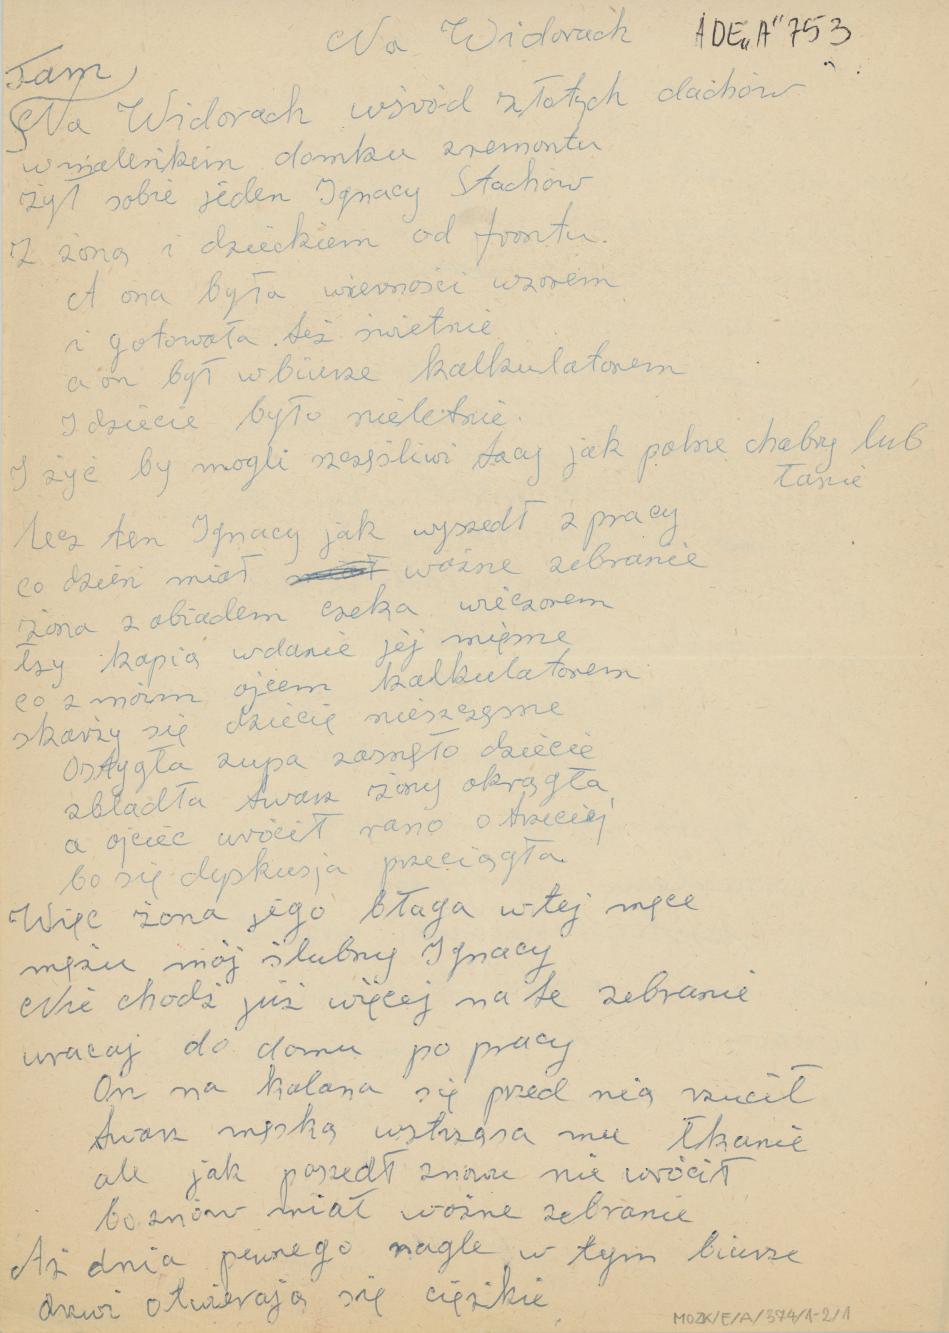 Na Widorach ADE„A” 753
Tam
Na Widorach wśród złotych dachów
w maleńkim domku z remontu
żył sobie jeden Ignacy Stachów
Z żoną i dzieckiem od frontu.
A ona była wierności wzorem
i gotowała też świetnie
a on był w biurze kalkulatorem
I dziecie było nieletnie.
I żyć by mogli szczęśliwi tacy jak polne chabry lub
łanie
lecz ten Ignacy jak wyszedł z pracy
co dzień miał ważne zebranie
żona z obiadem czeka wieczorem
łzy kapią w danie jej mięsne
co z moim ojcem kalkulatorem
skarży się dziecię nieszczęsne
Ostygła zupa zasnęło dziecie
zbladła twarz żony okrągła
a ojciec wrócił rano o trzeciej
bo się dyskusja przeciągła.
Więc żona jego błaga w tej męce
mężu mój ślubny Ignacy
Nie chodź już więcej na te zebranie
wracaj do domu po pracy
On na kolana się przed nią rzucił
twarz męską wstrząsa mu łkanie
ale jak poszedł znowu nie wrócił
bo znów miał ważne zebranie
Aż dnia pewnego nagle w tym biurze
drzwi otwierają się ciężkie
MOZK/E/A/374/1-2/1